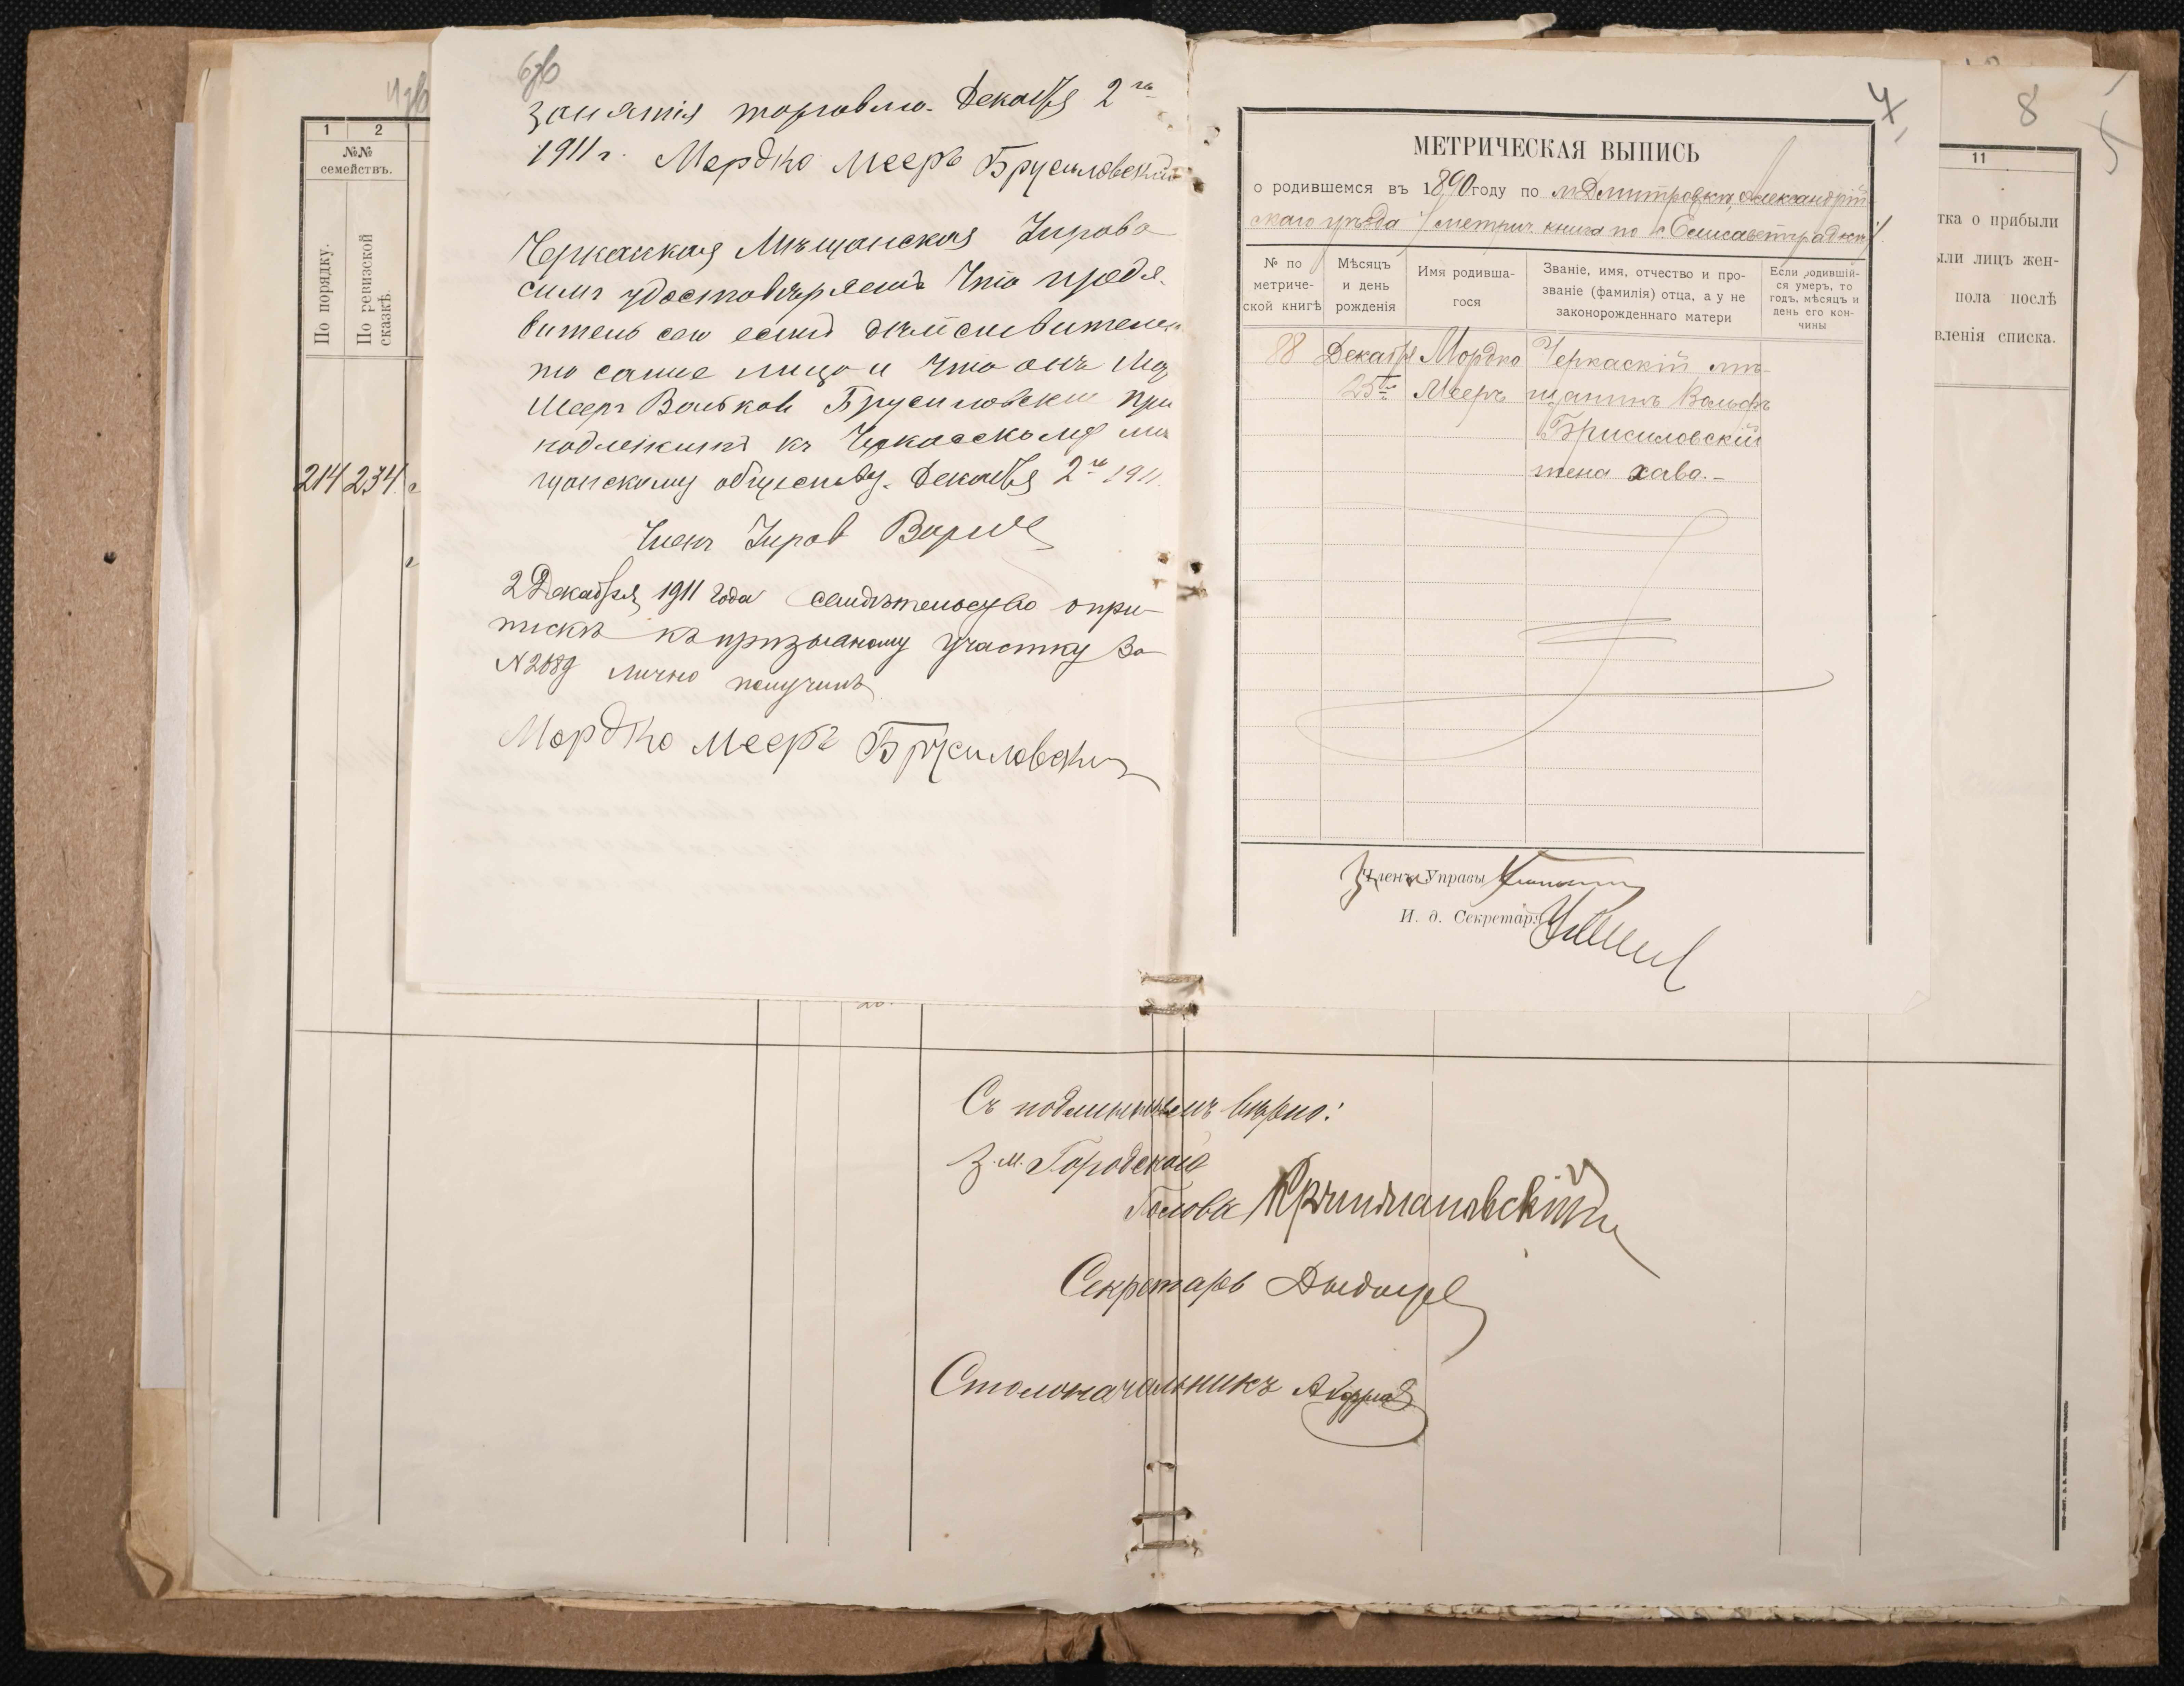 4об
1 2
№№
семействъ.
По порядку.
По ревизской
сказкѣ.
214 234
6об
занятія торговлю. Декабря 2го
1911 г. Мордко Мееръ Брусиловский
Черкаская Мѣщанская Управа
симъ удостовѣряетъ что предя-
витель сего есть дѣйствителен
то самие лицо и что онъ Мор
Мееръ Вольков Брусиловский при
надлежитъ къ Черкасскому мѣ
щанскому обществу. Декабря 2го 1911.
Членъ Управ
2 Декабря 1911 года свидѣтельство о при-
пискѣ къ призывному участку за
N 2089 лично получилъ
Мордко Мееръ Брусиловский
7,
МЕТРИЧЕСКАЯ ВЫПИСЬ
о родившемся въ 1890 году по м. Дмитровки, Александрій-
скаго уѣзда /метрич. книга по г. Елисаветграду/.
№ по
метриче-
ской книгѣ
Мѣсяцъ
и день
рожденія
Имя родивша-
гося
Званіе, имя, отчество и про-
званіе (фамилія) отца, а у не
законорожденнаго матери
Если родившій-
ся умеръ, то
годъ, мѣсяцъ и
день его кон-
чины
88 Декабря Мордко Черкаскій мѣ-
25го Мееръ щанинъ Вольфъ
Брисиловскій
жена Хава.-
Членъ Управы
И. д. Секретаря
8
5
11
тка о прибыли
ыли лицъ жен-
пола послѣ
вленія списка.
Съ подлиннымъ вѣрно:
З. м. Городского
Голова
Секретарь
Столоначальникъ